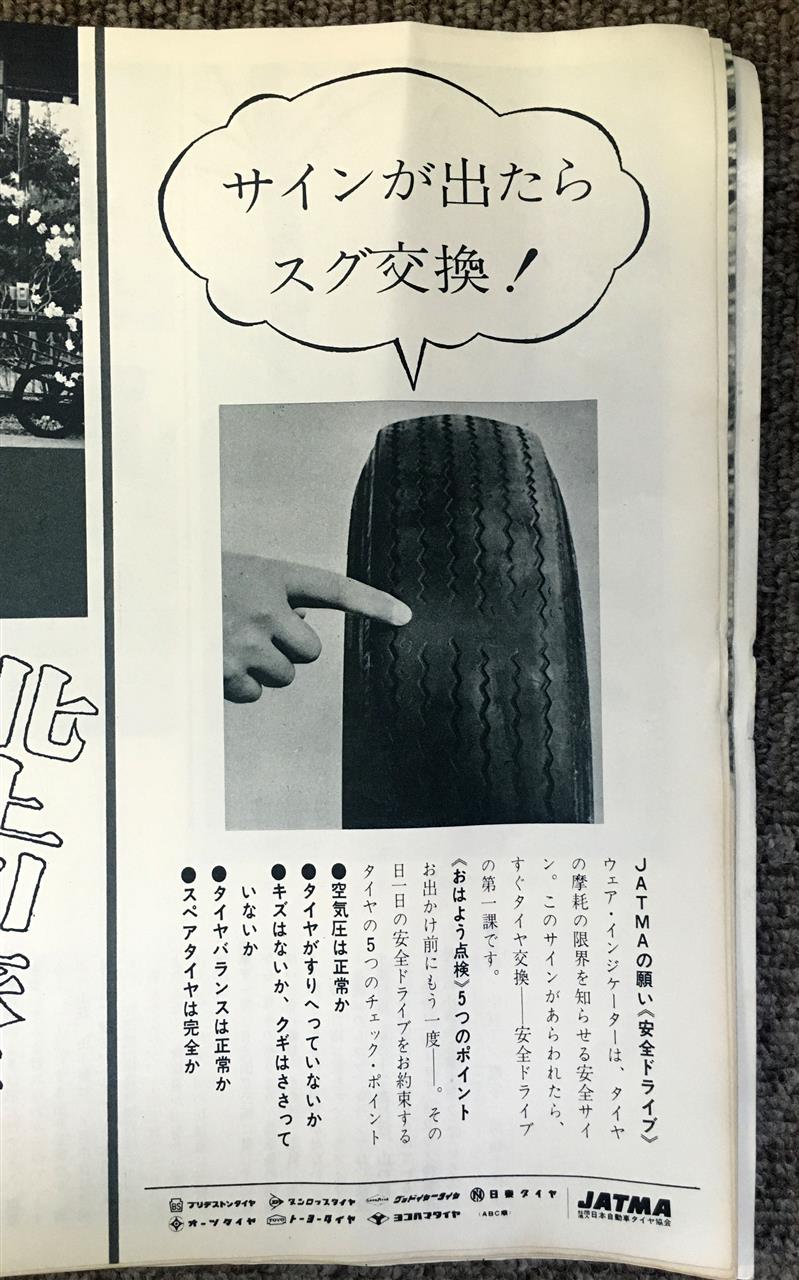 サインが出たら
スグ交換!
JATMAの願い《安全ドライブ》
ウェア・インジケーターは、タイヤ
の摩耗の限界を知らせる安全サイ
ン。このサインがあらわれたら、
すぐタイヤ交換――安全ドライブ
の第一課です。
《おはよう点検》5つのポイント
お出かけ前にもう一度――。その
日一日の安全ドライブをお約束する
タイヤの5つのチェック・ポイント
●空気圧は正常か
●タイヤがすりへっていないか
●キズはないか、クギはささって
いないか
●タイヤバランスは正常か
●スペアタイヤは完全か
BS ブリヂストンタイヤ
ダンロップタイヤ
グッドイヤータイヤ
N 日東タイヤ
オーツタイヤ
TOYO トーヨータイヤ
ヨコハマタイヤ
(ABC順)
JATMA
社団法人 日本自動車タイヤ協会
北上川